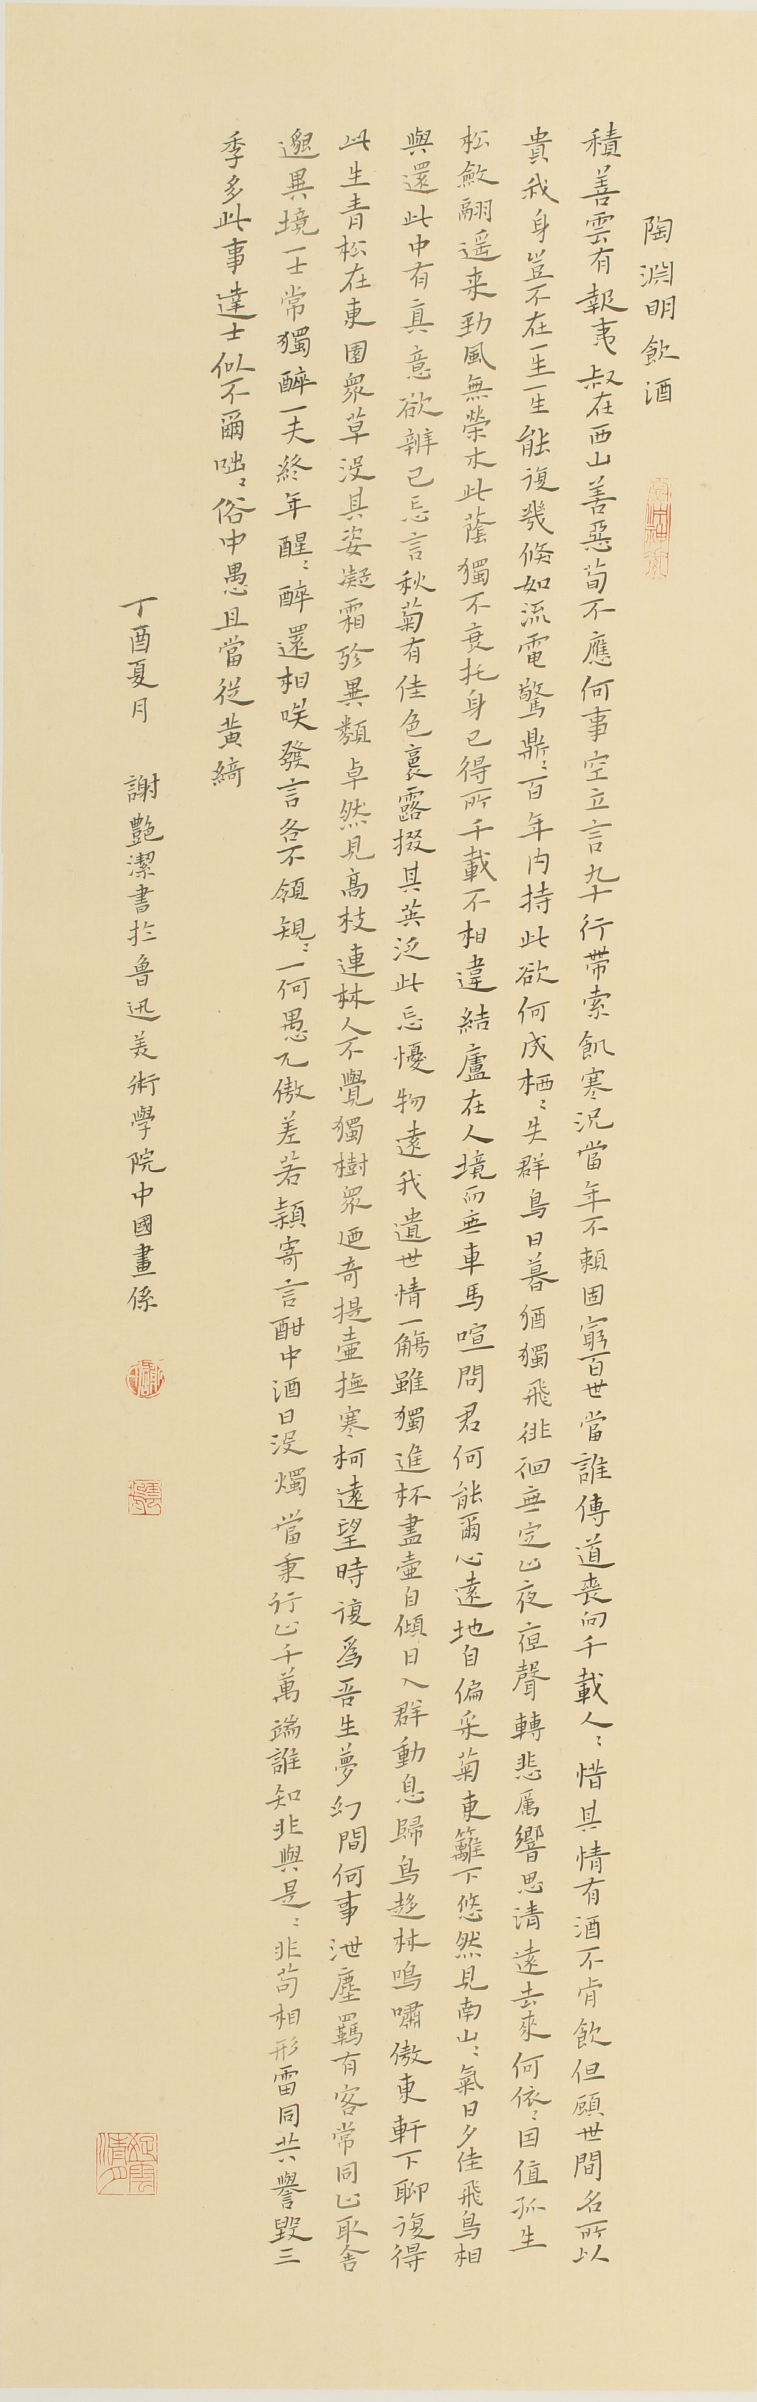 陶淵明飲酒
積善雲有報夷叔在西山善惡苟不應何事空立言九十行帶索飢寒況當年不賴固窮百世當誰傳道喪向千載人〻惜其情有酒不肯飲但顧世間名所以
貴我身豈不在一生一生能復幾倏如流電驚鼎〻百年內持此欲何成栖〻失群鳥日暮猶獨飛徘徊無定止夜夜聲轉悲厲響思清遠去來何依〻因值孤生
松斂翮遥来勁風無榮木此蔭獨不衰托身已得所千載不相違結廬在人境而無車馬喧問君何能爾心遠地自偏采菊東籬下悠然見南山〻氣日夕佳飛鳥相
與還此中有真意欲辨已忘言秋菊有佳色裛露掇其英泛此忘憂物遠我遺世情一觴雖獨進杯盡壺自傾日入群動息歸鳥趍林鳴嘯傲東軒下聊復得
此生青松在東園衆草没其姿凝霜殄異類卓然見高枝連林人不覺獨樹衆迺奇提壺撫寒柯遠望時復為吾生夢幻間何事泄塵羈有客常同止取舍
邈異境一士常獨醉一夫終年醒〻醉還相咲發言各不領規〻一何愚兀傲差若潁寄言酣中酒日没燭當秉行止千萬端誰知非與是〻非苟相形雷同共譽毀三
季多此事達士似不爾咄〻俗中愚且當從黄綺
丁酉夏月 謝艷潔書於魯迅美術學院中國畫係